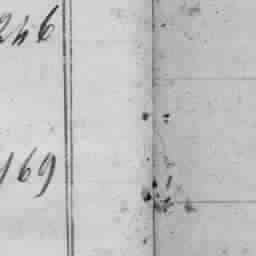 246
169